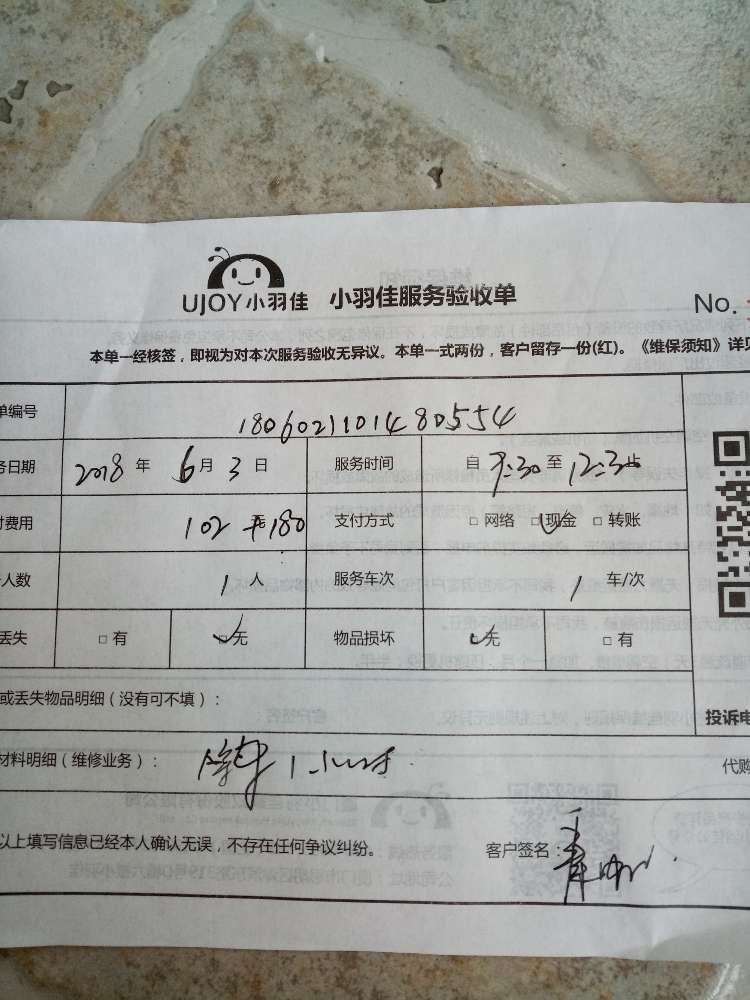 UJOY小羽佳 小羽佳服务验收单
No.
本单一经核签，即视为对本次服务验收无异议。本单一式两份，客户留存一份(红)。《维保须知》详见
单编号 1806021101480554
务日期 2018 年 6 月 3 日 服务时间 自 9:30 至 12:30
付费用 102 180 支付方式 □ 网络 □ 现金 □ 转账
人数 1 人 服务车次 1 车/次
丢失 □ 有 □ 无 物品损坏 □ 无 □ 有
或丢失物品明细（没有可不填）：
投诉电
材料明细（维修业务）： 1 小时
代购
以上填写信息已经本人确认无误，不存在任何争议纠纷。 客户签名：